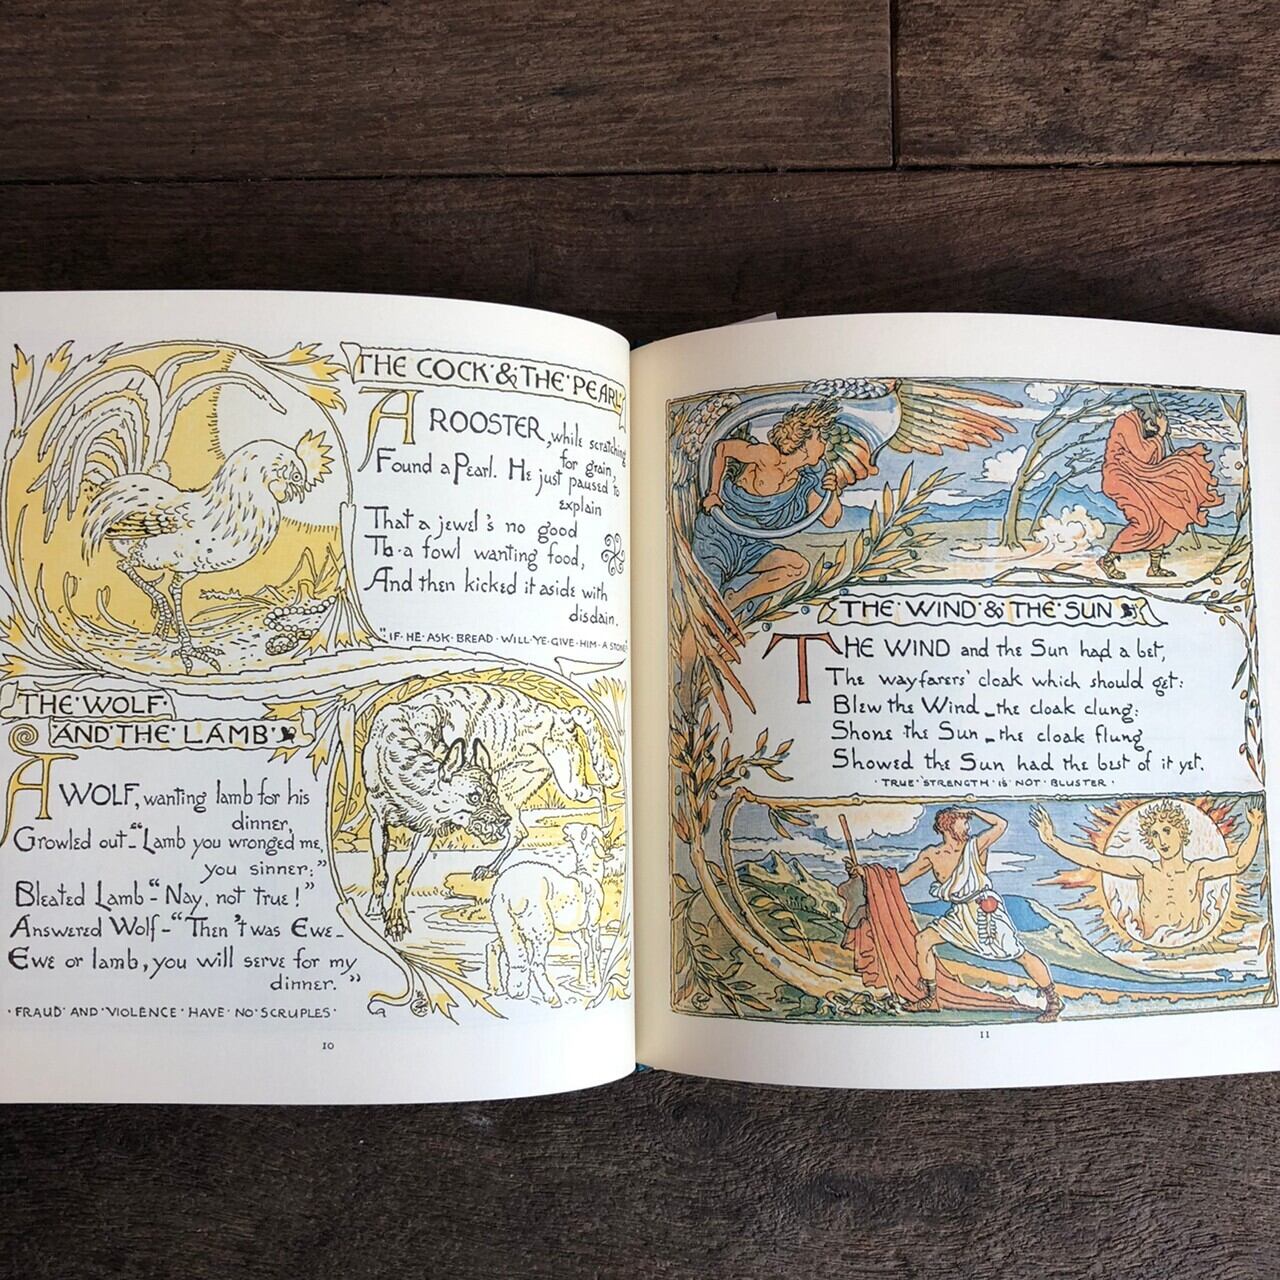 THE COCK & THE PEARL
A ROOSTER, while scratching
for grain,
Found a Pearl. He just paused to
explain
That a jewel's no good
To a fowl wanting food,
And then kicked it aside with
disdain.
"IF HE ASK BREAD WILL YE GIVE HIM A STONE"
THE WOLF
AND THE LAMB
A WOLF, wanting lamb for his
dinner,
Growled out—"Lamb you wronged me,
you sinner:"
Bleated Lamb—"Nay, not true!"
Answered Wolf—"Then 't was Ewe—
Ewe or lamb, you will serve for my
dinner."
FRAUD AND VIOLENCE HAVE NO SCRUPLES
10
THE WIND & THE SUN
THE WIND and the Sun had a bet,
The wayfarers' cloak which should get:
Blew the Wind—the cloak clung:
Shone the Sun—the cloak flung
Showed the Sun had the best of it yet.
TRUE STRENGTH IS NOT BLUSTER
11